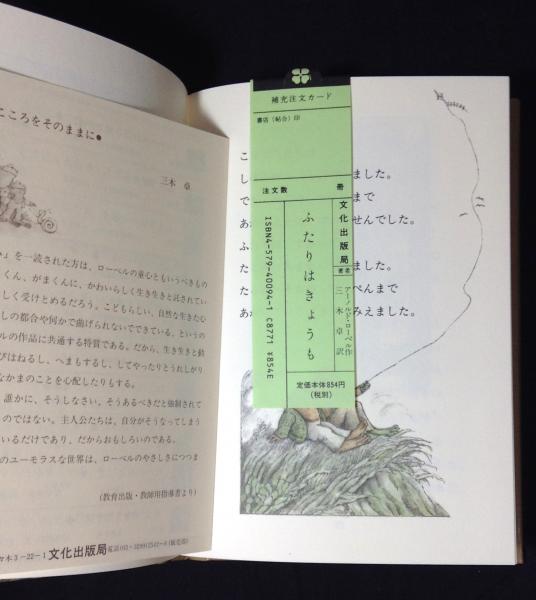 こころをそのままに●
三木 卓
』を一読された方は、ローベルの童心ともいうべきもの
くん、がまくんに、かわいらしく生き生きと託されてい
しく受けとめるだろう。こどもらしい、自然な生きたむ
しの都合や何かで曲げられないでできている、というの
ルの作品に共通する特質である。だから、生き生きと動
びはねるし、へまもするし、してやったりとうれしがり
なかまのことを心配したりもする。
誰かに、そうしなさい。そうあるべきだと強制されて
のではない。主人公たちは、自分がそうなってしまう
いるだけであり、だからおもしろいのである。
のユーモラスな世界は、ローベルのやさしさにつつま
(教育出版・教師用指導書より)
々木3-22-1 文化出版局
補充注文カード
書店(帖合)印
注文数
冊
文化出版局
著者
アーノルド・ローベル作
三木 卓訳
ふたりはきょうも
ISBN4-579-40094-1 C8771 ¥854E
定価本体854円
(税別)
こ
し ました。
で まで
あ せんでした。
ふ
た ました。
た ぺんまで
あ みえました。